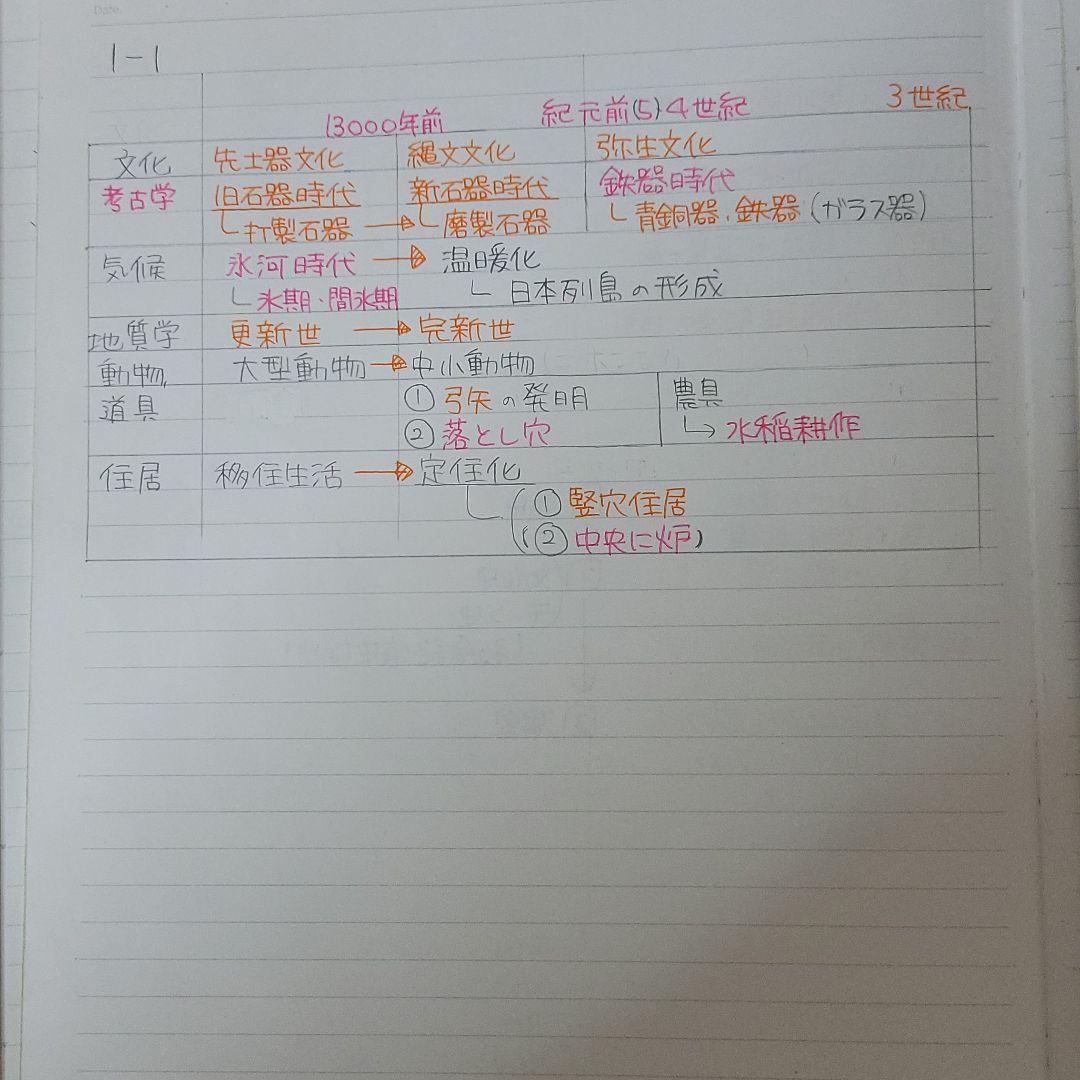 Date
1-1
13000年前 紀元前(5)4世紀 3世紀
文化 先土器文化 縄文文化 弥生文化
考古学 旧石器時代 新石器時代 鉄器時代
└打製石器 → └磨製石器 └青銅器、鉄器(ガラス器)
気候 氷河時代 → 温暖化
└氷期・間氷期 └日本列島の形成
地質学 更新世 → 完新世
動物 大型動物 → 中小動物
道具 ①弓矢の発明 農具
②落とし穴 └→水稲耕作
住居 移住生活 → 定住化
└(①竪穴住居
(②中央に炉)